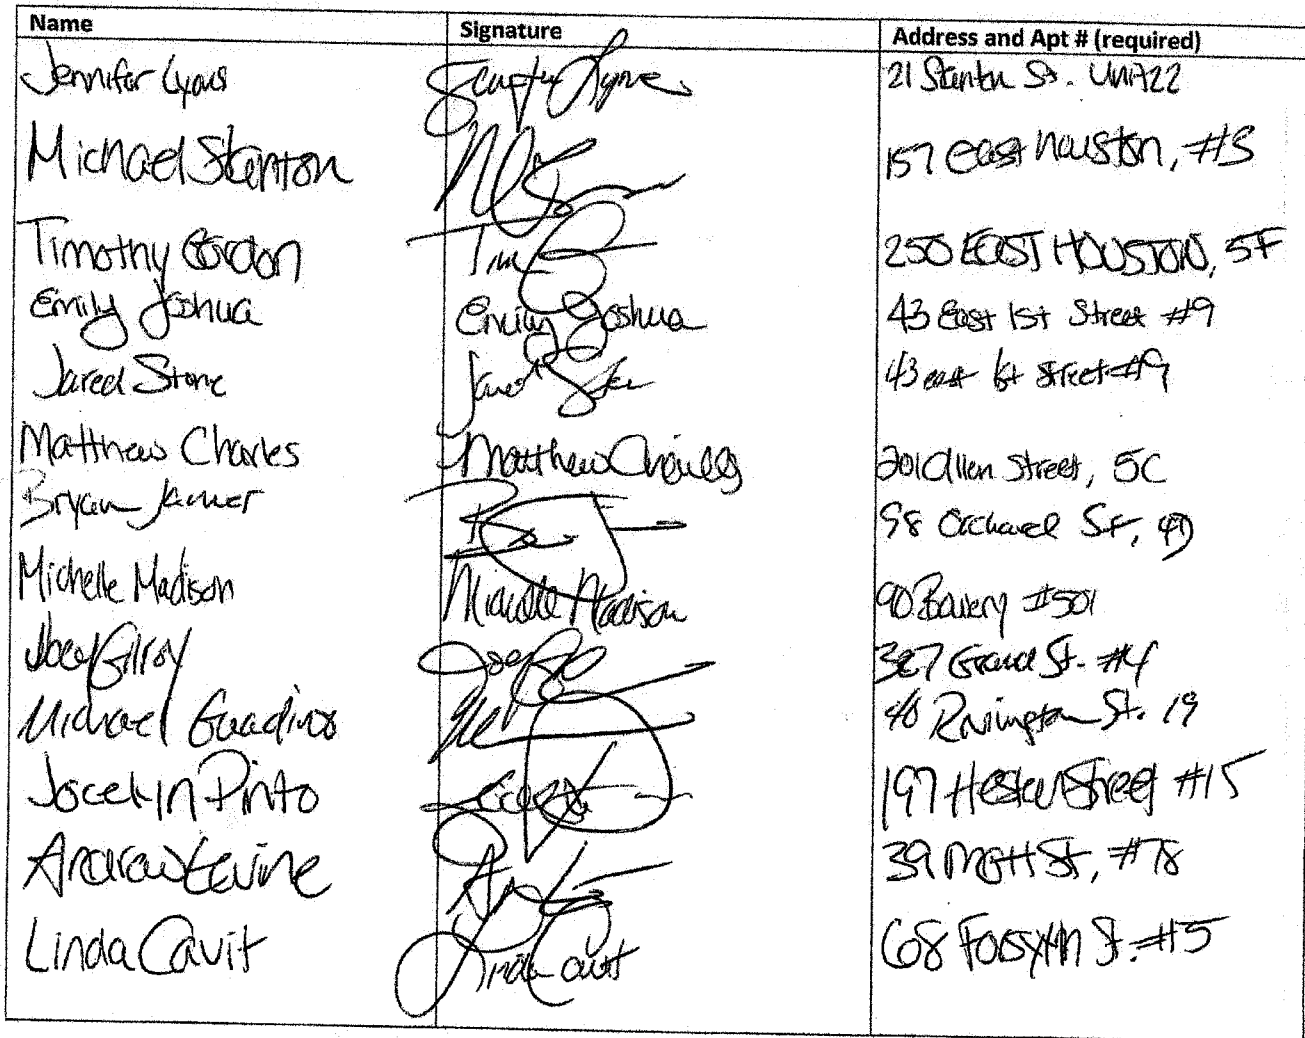 Name Signature Address and Apt # (required)
Jennifer Lyons 21 Stanton St. Unit 22
Michael Stanton 157 east houston, #3
Timothy Gordon Tim 250 EAST HOUSTON, 5F
Emily Joshua Emily Joshua 43 East 1st Street #9
Jared Stone Jared 43 east 1st street #9
Matthew Charles Matthew Charles 201 Allen Street, 5C
Bryan 98 Orchard St,
Michelle Madison Michelle Madison 90 Bowery #501
Joey Gilroy 327 Grand St. #4
Michael Guadino 40 Rivington St. 19
Jocelyn Pinto 197 Hester Street #15
Andrew Levine 39 Mott St, #78
Linda Cavit Linda Cavit 68 Forsyth St. #15